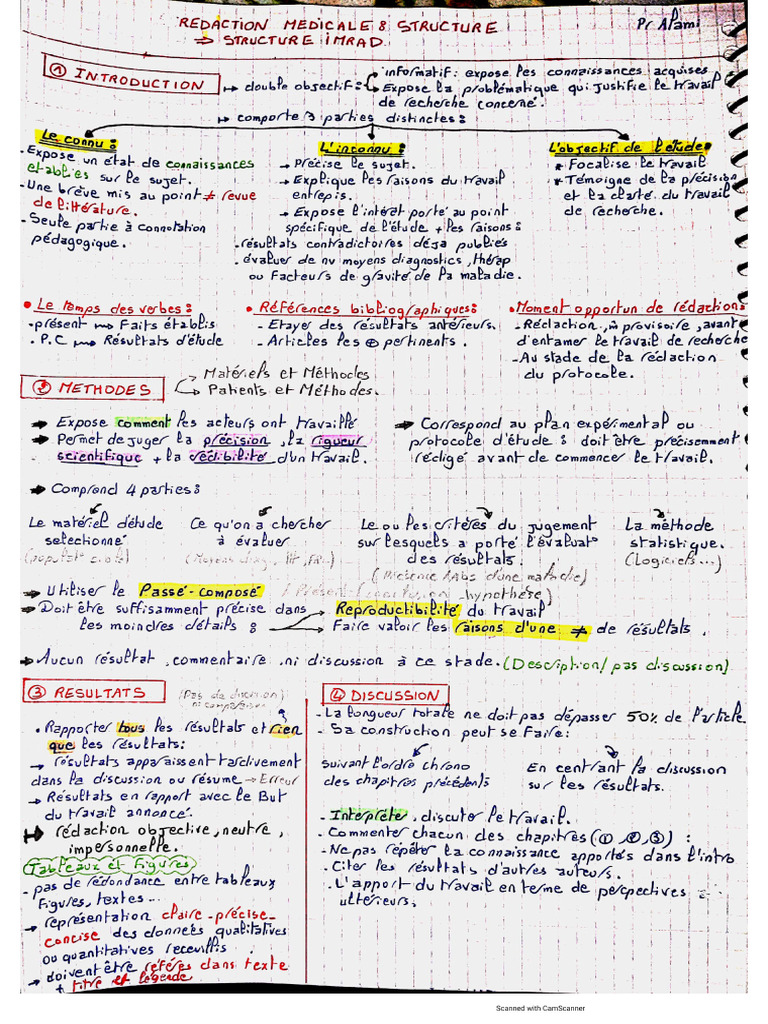 REDACTION MEDICALE & STRUCTURE
Pr Alami
⇒ STRUCTURE IMRAD
① INTRODUCTION
↦ double objectif:
informatif: expose les connaissances acquises
Expose la problématique qui justifie le travail
de recherche concerné
↦ comporte 3 parties distinctes:
Le connu:
- Expose un état de connaissances
etablies sur le sujet.
- Une brève mis au point ≠ revue
de littérature.
- Seule partie à connotation
pédagogique.
L'inconnu:
→ Précise le sujet.
→ Explique les raisons du travail
entrepis.
→ Expose l'intérêt porté au point
spécifique de l'étude + les raisons:
- résultats contradictoires déjà publiés
- évaluer de nv moyens diagnostics, thérap
ou Facteurs de gravité de la maladie.
L'objectif de l'étude
* Focalise le travail
* Témoigne de la précision
et la clarté du travail
de recherche.
• Le temps des verbes:
- présent → Faits établis
- P.C → Résultats d'étude
• Références bibliographiques:
- Etayer des résultats antérieurs.
- Articles les ⊕ pertinents.
• Moment opportun de rédaction
- Rédaction, provisoire, avant
d'entamer le travail de recherche
- Au stade de la rédaction
du protocole.
② METHODES
Matériels et Méthodes
Patients et Méthodes.
→ Expose comment les acteurs ont travaillé
→ Permet de juger la précision, la rigueur
scientifique + la crédibilité d'un travail.
→ Correspond au plan expérimental ou
protocole d'étude: doit être précisemment
rédigé avant de commencer le travail.
→ Comprend 4 parties:
Le matériel d'étude
selectionné
Ce qu'on a chercher
à évaluer
Le ou les critères du jugement
sur lesquels a porté l'évaluat°
des résultats.
(Présence d'une maladie)
La méthode
statistique.
(Logiciels...)
→ Utiliser le Passé-composé
hypothèse)
→ Doit être suffisamment précise dans
les moindres détails:
Reproductibilité du travail
Faire valoir les raisons d'une ≠ de résultats.
→ Aucun résultat, commentaire, ni discussion à ce stade. (Description/ pas discussion)
③ RESULTATS
(Pas de discussion)
ni comparaison
• Rapporter tous les résultats et rien
que les résultats:
→ résultats apparaissent tardivement
dans la discussion ou résume → Erreur
→ Résultats en rapport avec le But
du travail annoncé.
↦ rédaction objective, neutre,
impersonnelle.
Tableaux et Figures
- pas de rédondance entre tableaux
Figures, textes...
→ représentation claire - précise -
concise des données qualitatives
ou quantitatives recueillis.
→ doivent être référés dans texte
+ titre et légende
④ DISCUSSION
- La longueur totale ne doit pas dépasser 50% de l'article
- Sa construction peut se Faire:
suivant l'ordre chrono
des chapitres précédents
En centrant la discussion
sur les résultats.
- Interprète, discuter le travail.
- Commenter chacun des chapitres (①, ②, ③):
- Ne pas répéter la connaissance apportés dans l'intro
- Citer les résultats d'autres auteurs.
- L'apport du travail en terme de perspectives
ultérieurs.
Scanned with CamScanner